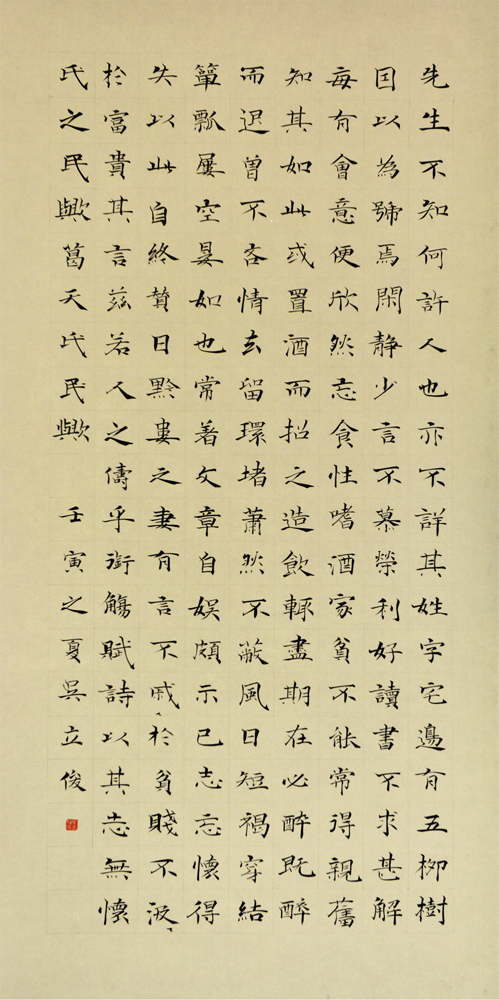 先生不知何許人也亦不詳其姓字宅邊有五柳樹
囙以為號焉閑静少言不慕榮利好讀書不求甚解
每有會意便欣然忘食性嗜酒家貧不能常得親舊
知其如此或置酒而招之造飲輒盡期在必醉既醉
而退曾不吝情去留環堵蕭然不蔽風日短褐穿結
簞瓢屢空晏如也常著文章自娛頗示己志忘懷得
失以此自終贊曰黔婁之妻有言不戚〻於貧賤不汲〻
於富貴其言茲若人之儔乎銜觴賦詩以其志無懷
氏之民歟葛天氏民歟 壬寅之夏吳立俊